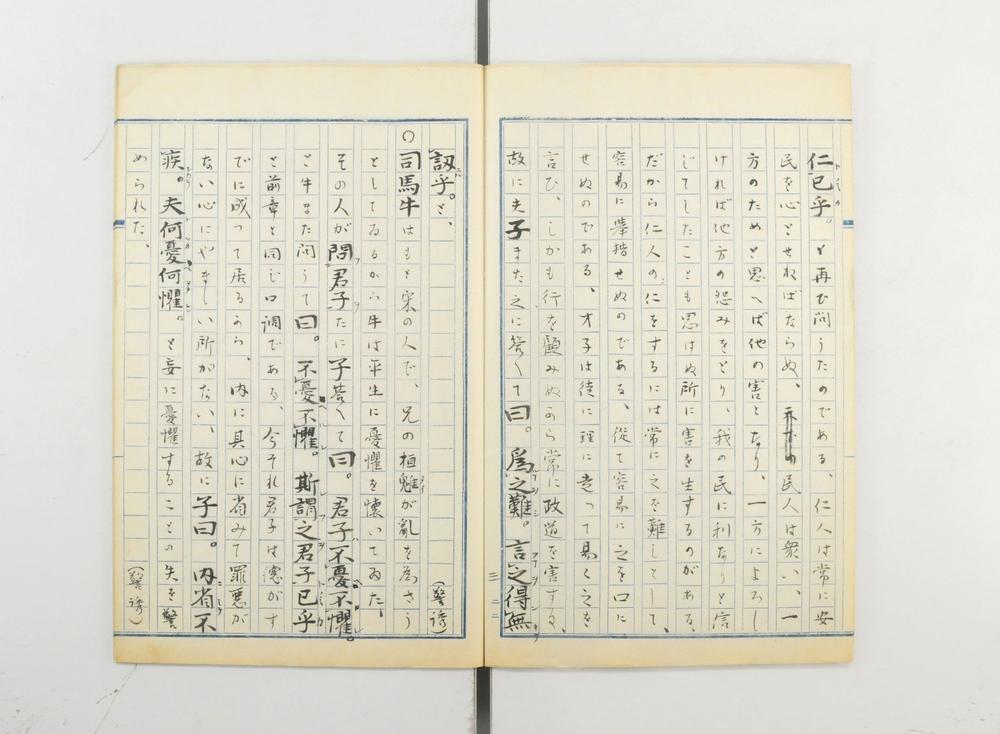 仁已乎。と再び問うたのである、仁人は常に安
民を心とせねばならぬ、民人は衆い、一
方のためと思へば他の害となり、一方によろし
ければ他方の怨みをとり、我の民に利なりと信
じてしたことも思はぬ所に害を生ずるのがある、
だから仁人の仁をするには常に之を難しとして、
容易に挙措せぬのである、従て容易に之を口に
せぬのである、才子は徒に理に走って易く之を
言ひ、しかも行を顧みぬから常に政道を害する、
故に夫子また之に答へて曰。為之難。言之得無
訒乎。と、
(警誘)
〇司馬牛はもと宋の人で、兄の桓魋が亂を為さう
としてゐるから牛は平生に憂懼を懐いてゐた、
その人が問君子たに子答へて曰。君子不憂不懼。
と牛また問うて曰。不憂不懼。斯謂之君子已乎
と前章と同じ口調である、今それ君子は徳がす
でに成って居るから、内に其心に省みて罪悪が
ない心にやましい所がない、故に子曰。内省不
疾。夫何憂何懼。と妄に憂懼することの失を警
められた、
(警誘)
三二二